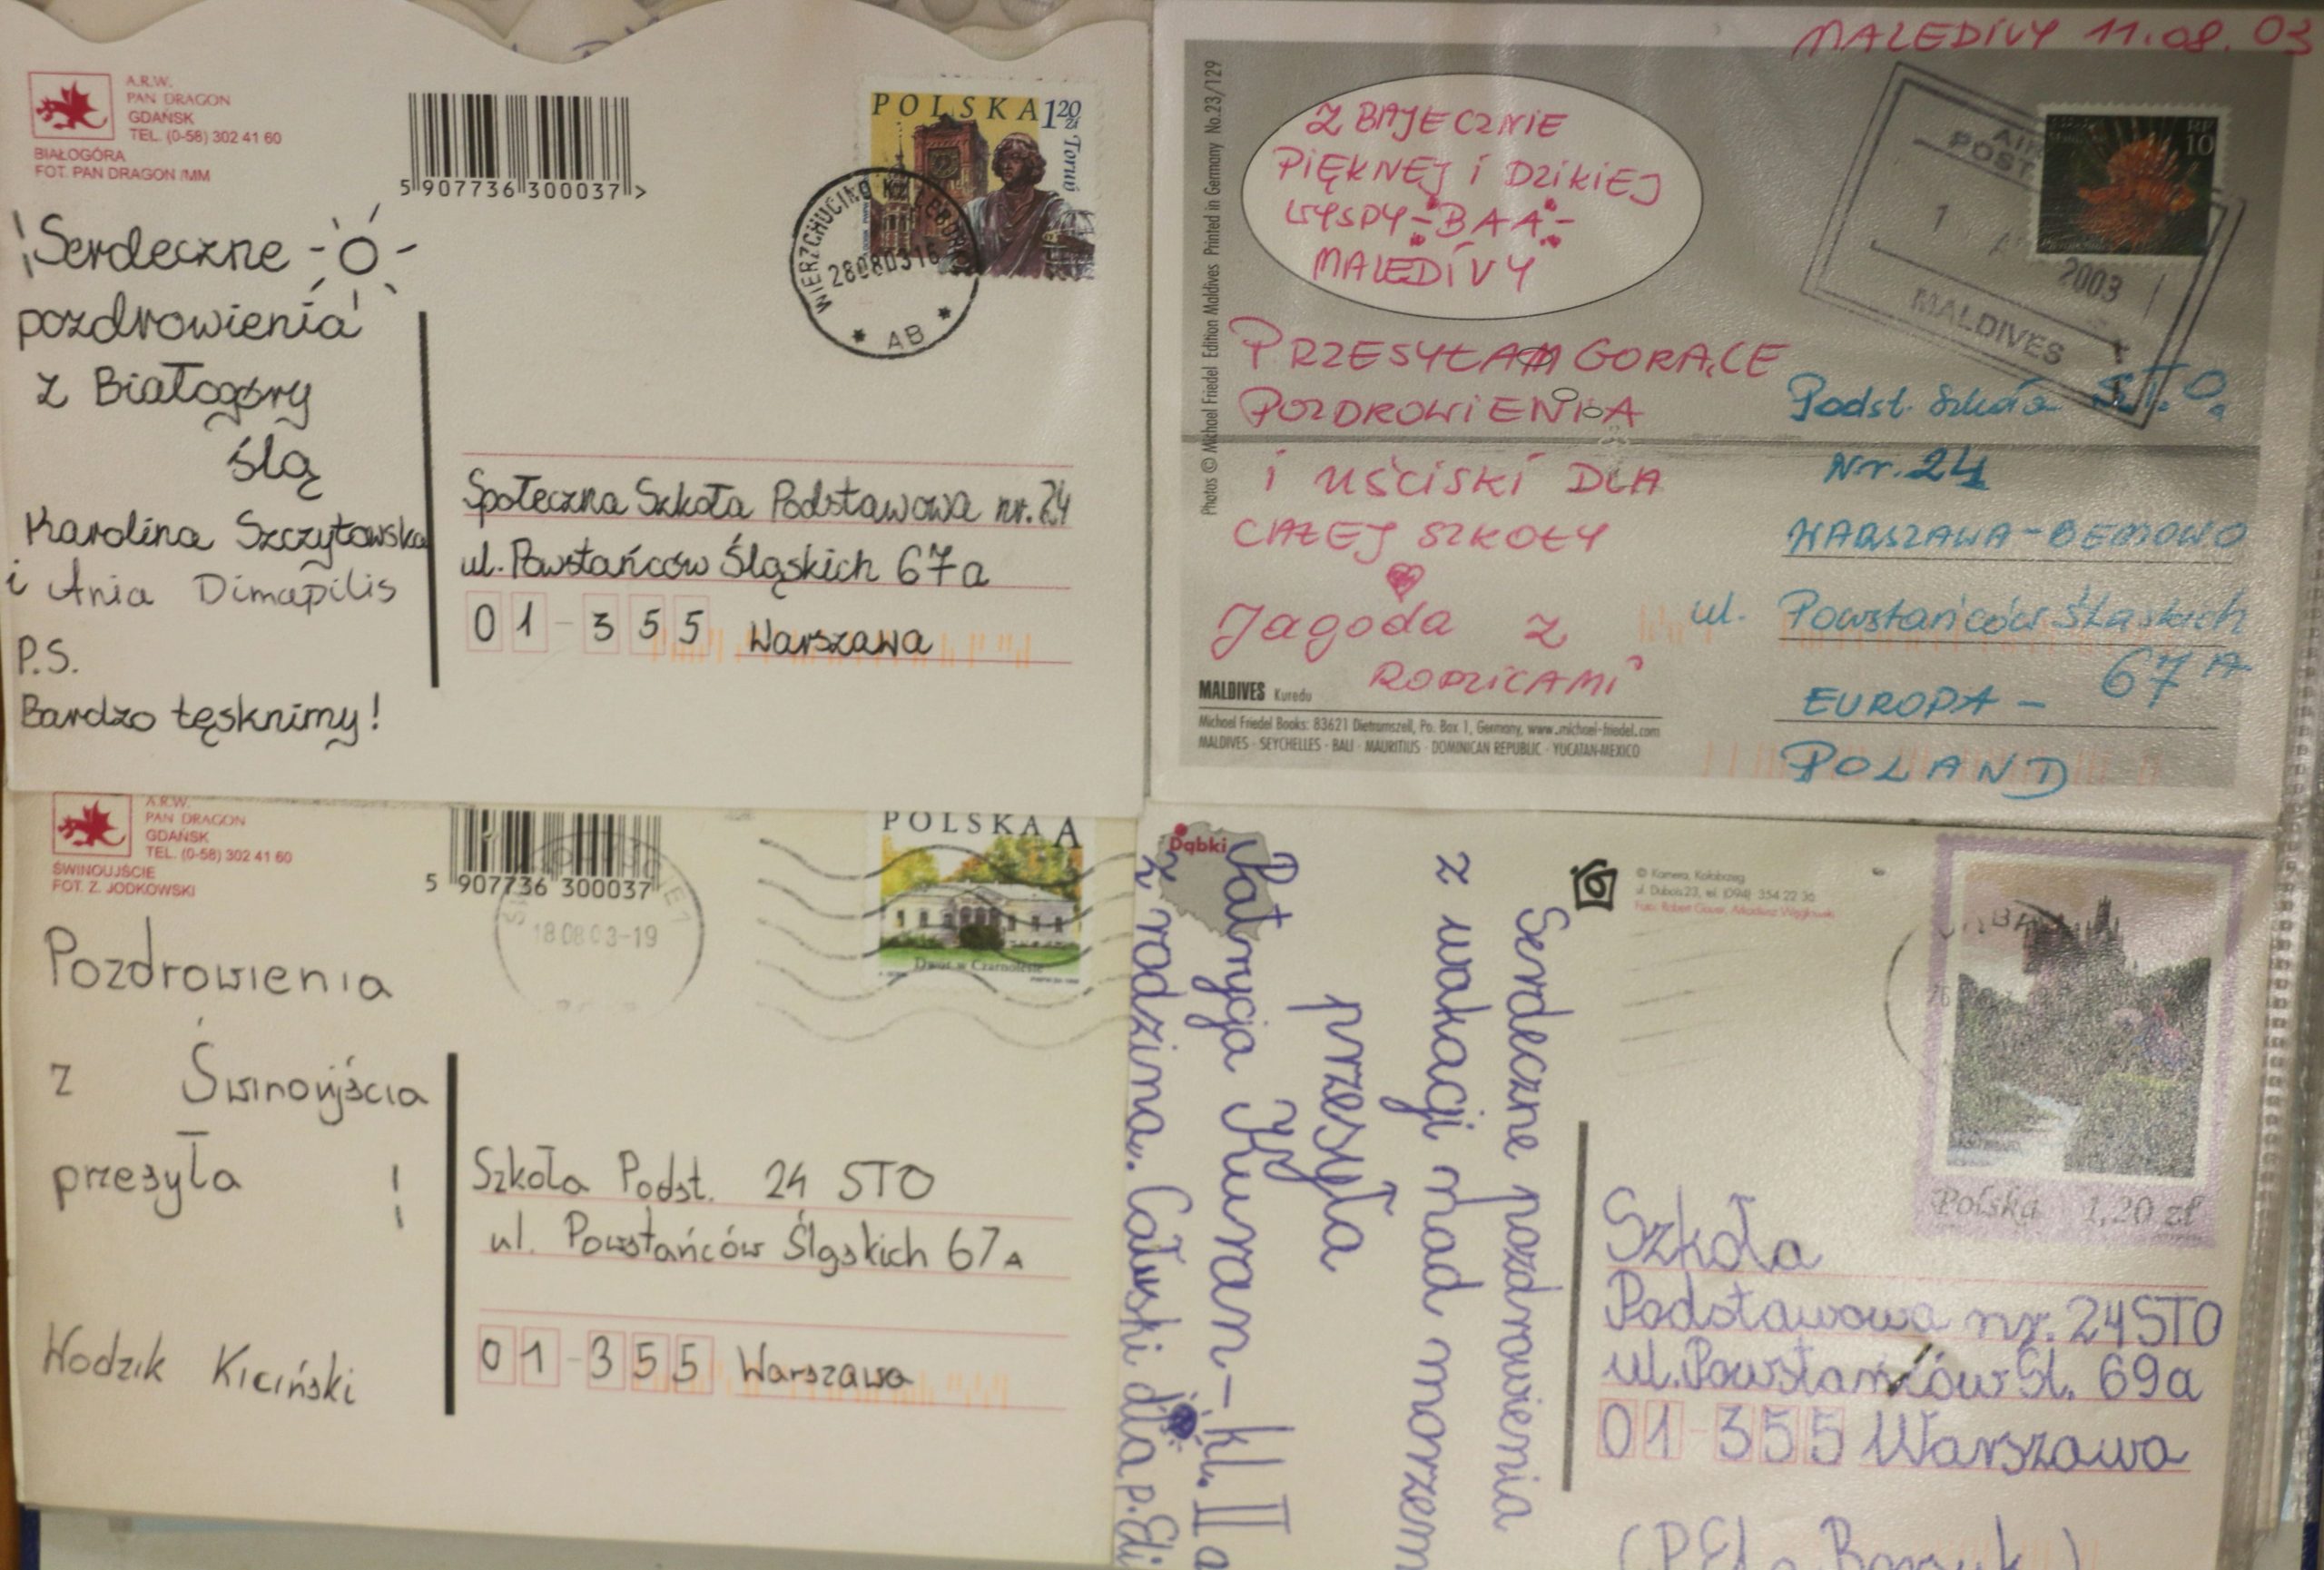 A.R.W.
PAN DRAGON
GDAŃSK
TEL. (0-58) 302 41 60
BIAŁOGÓRA
FOT. PAN DRAGON /MM
5 907736 300037 >
POLSKA 1,20 zł
Toruń
WIERZCHUCINO K/LĘBORKA
28080316
* AB *
Serdeczne
pozdrowienia
z Białogóry
ślą
Karolina Szczytowska
i Ania Dimapilis
P.S.
Bardzo tęsknimy!
Społeczna Szkoła Podstawowa nr. 24
ul. Powstańców Śląskich 67a
01-355 Warszawa
MALEDIVY 11.08.03
Photos © Michael Friedel Edition Maldives Printed in Germany No.23/129
Z BAJECZNIE
PIĘKNEJ i DZIKIEJ
WYSPY-BAA-
MALEDIVY
AIR
POST
1
2003
MALDIVES
10
PRZESYŁAM GORĄCE
POZDROWIENIA
i UŚCISKI DLA
CAŁEJ SZKOŁY
Jagoda z
RODZICAMI
MALDIVES Kuredu
Michael Friedel Books: 83621 Dietramszell, Po. Box 1, Germany, www.michael-friedel.com
MALDIVES · SEYCHELLES · BALI · MAURITIUS · DOMINICAN REPUBLIC · YUCATAN-MEXICO
Podst. Szkoła S.T.O.
Nr. 24
WARSZAWA-BEMOWO
ul. Powstańców Śląskich
67 A
EUROPA -
POLAND
A.R.W.
PAN DRAGON
GDAŃSK
TEL. (0-58) 302 41 60
ŚWINOUJŚCIE
FOT. Z. JODKOWSKI
5 907736 300037
18 08 03-19
POLSKA A
Dwór w Czarnolesie
Pozdrowienia
z Świnoujścia
przesyła
Wodzik Kiciński
Szkoła Podst. 24 STO
ul. Powstańców Śląskich 67A
01-355 Warszawa
Dąbki
Serdeczne pozdrowienia
z wakacji nad morzem
przesyła
Patrycja Kuran - kl. II a
z rodziną. Całuski dla p. Eli
© Kamera, Kołobrzeg
ul. Dubois 23, tel. (094) 354 22 36
Polska 1,20 zł
Szkoła
Podstawowa nr. 24STO
ul. Powstańców Śl. 69a
01-355 Warszawa